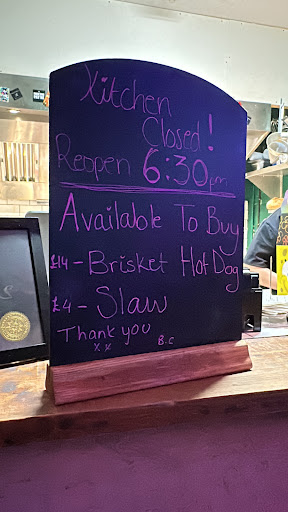 Kitchen
Closed!
Reopen 6:30pm
Available To Buy
£14 - Brisket Hot Dog
£4 - Slaw
Thank you
x x B.C